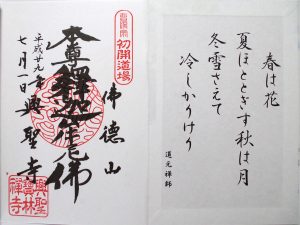 春は花
夏ほととぎす秋は月
冬雪さえて
冷しかりけり
道元禅師
初開道場
佛徳山
本尊釋迦牟尼佛
平成廿九年
七月一日
興聖寺
興聖
禅寺